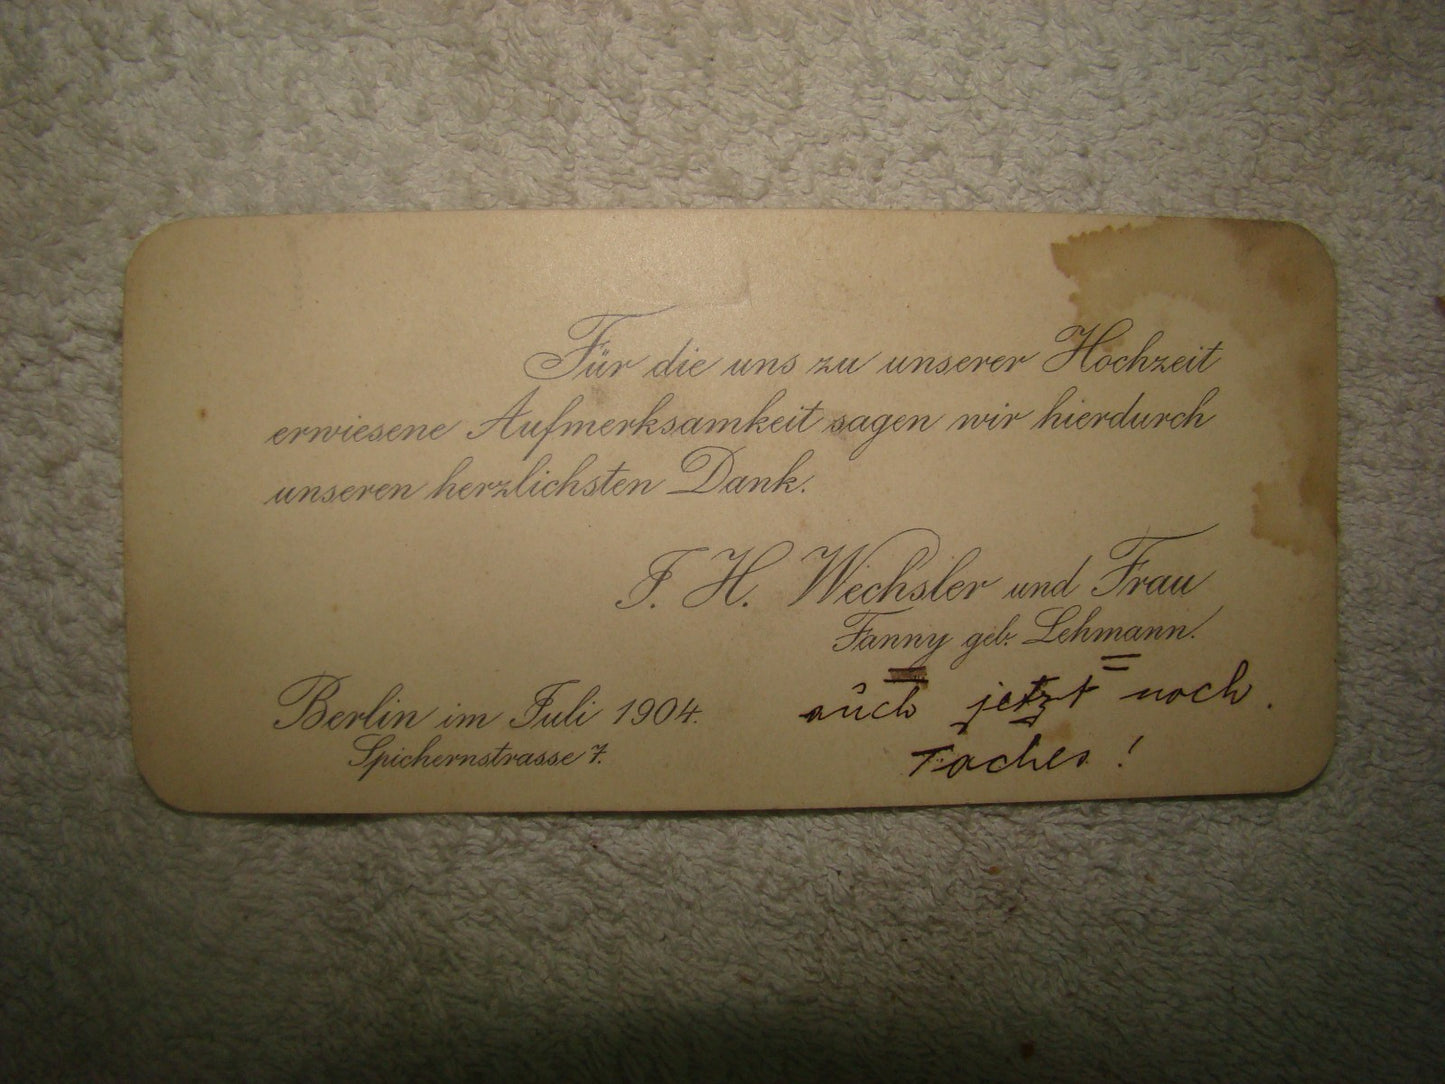 Für die uns zu unserer Hochzeit
erwiesene Aufmerksamkeit sagen wir hierdurch
unseren herzlichsten Dank.
J. H. Wechsler und Frau
Fanny geb. Lehmann.
Berlin im Juli 1904.
Spichernstrasse 7.
auch jetzt noch.
Taches!